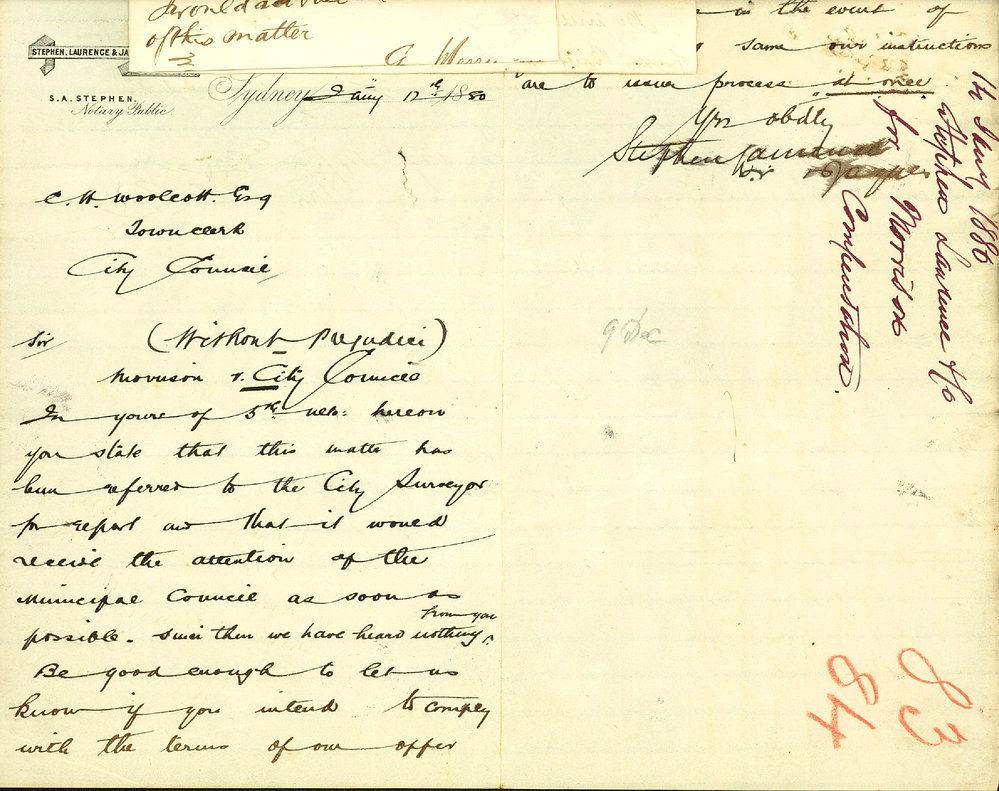 would advise
of this matter
STEPHEN, LAURENCE & JA
S. A. STEPHEN.
Notary Public.
Sydney Jany 12th 1886
C. H. Woolcott. Esq
Town clerk
City Council
Sir
(Without Prejudice)
Morrison v. City Council
In yours of 5th ulto: hereon
you state that this matter has
been referred to the City Surveyor
for report and that it would
receive the attention of the
Municipal Council as soon as
possible. Since then we have heard nothing from you
Be good enough to let us
know if you intend to comply
with the terms of our offer
in the event of
same our instructions
are to issue process at once
Yrs obdly
Stephen Laurence
& Jaques
14 Jany 1886
Stephen Laurence & Co
for Morrison
Compensation.
9 Dec
83
84